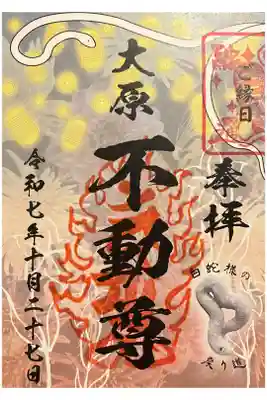 ご縁日
奉拝
白蛇様の
大原
不動尊
令和七年十月二十七日